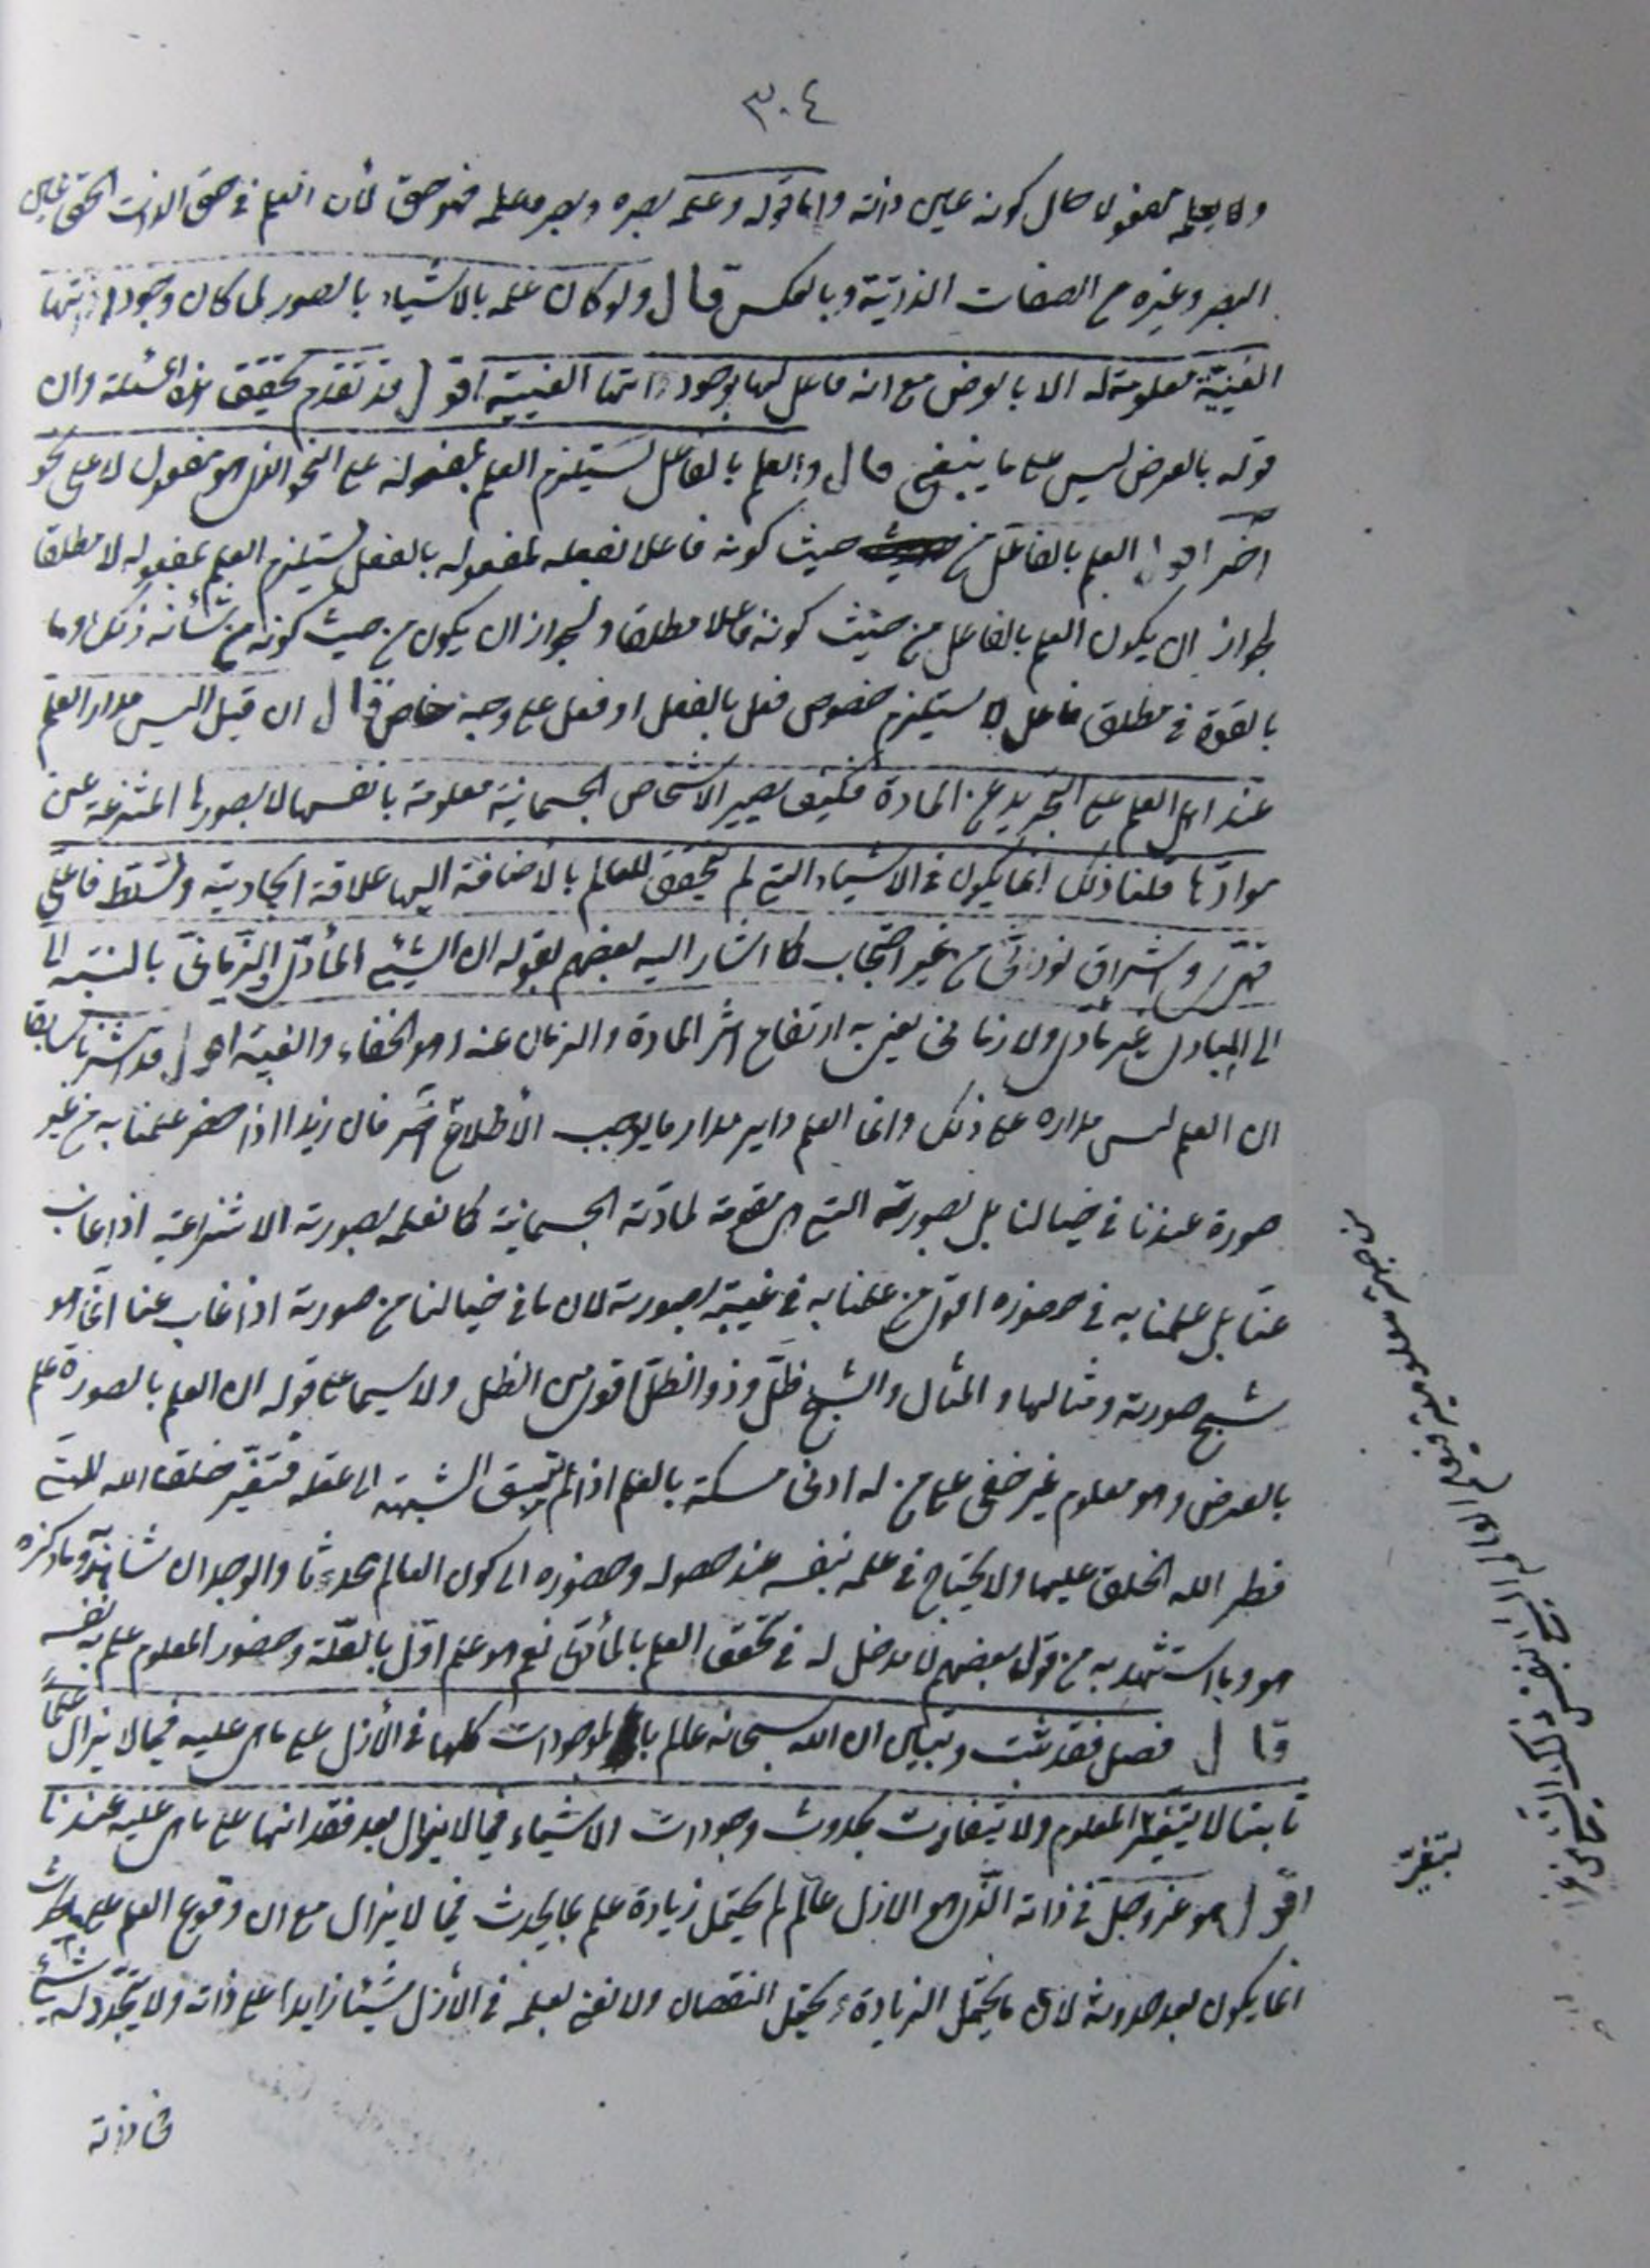 ٣٠٤
ولا يعلمه مفعولا حال كونه عين ذاته واما قوله وعلمه بصره وبصره علمه فهو حق لأن العلم في حق الذات الحق عين
البصر وغيره من الصفات الذاتية وبالعكس قال ولو كان علمه بالاشياء بالصور لما كان وجود ذاتها
العينية معلومة له الا بالعرض مع انه فاعل لها بوجود ذاتها العينية اقول قد تقدم تحقيق هذه المسئلة وان
قوله بالعرض ليس على ما ينبغي قال والعلم بالفاعل يستلزم العلم بمفعوله على النحو الذي هو مفعول لا على نحو
اخر اقول العلم بالفاعل من حيث كونه فاعلا لفعله لمفعوله بالفعل يستلزم العلم بمفعوله لا مطلقا
لجواز ان يكون العلم بالفاعل من حيث كونه فاعلا مطلقا ولجواز ان يكون من حيث كونه من شأنه ذلك وما
بالقوة في مطلق فاعل لا يستلزم خصوص فعل بالفعل او فعل على وجه خاص قال ان قيل اليس مدار العلم
عند اهل العلم على التجريد عن المادة فكيف يصير الاشخاص الجسمانية معلومة بانفسها لا بصورها المنتزعة عن
موادّها قلنا ذلك انما يكون في الاشياء التي لم يتحقق للعالم بالاضافة اليها علاقة ايجادية وتسلط فاعلي
قهري واشراق نوري من غير احتجاب كما اشار اليه بعضهم بقوله ان الشيء المادّي والزماني بالنسبة الى
الى المبادي غير مادي ولا زماني يعني به ارتفاع اثر المادة والزمان عنه وهو الخفاء والغيبة اقول قد اشرنا سابقا
ان العلم ليس مداره على ذلك وانما العلم داير مدار ما يوجب الأطلاع اخر فان زيدا اذا حضر علمنا به من غير
صورة عندنا في خيالنا بل بصورته التي هي مقومة لمادته الجسمانية كما نعلمه بصورته الانتزاعية اذا غاب
عنا بل علمنا به في حضوره اقوى من علمنا به في غيبته بصورته لان ما في خيالنا من صورته اذا غاب عنا انما هو
شبح صورته ومثالها والمثال والشبح ظلّ وذو الظلّ اقوى من الظل ولا سيما على قوله ان العلم بالصورة علم
بالعرض وهو معلوم غير خفي على من له ادنى مسكة بالعلم اذا لم تسبق الشبهة الى عقله فتغيّر خلقة الله التي
فطر الله الخلق عليها ولا يحتاج في علمه بنفسه عند حصوله وحضوره الى كون العالم محدثا والوجدان شاهد وما ذكره
هو وما استشهد به من قول بعضهم لا مدخل له في تحقق العلم بالمادي نعم هو علم اوّل بالعلّة وحضور المعلوم علم به نفسه
قال فصل فقد ثبت وتبين ان الله سبحانه عالم بالموجودات كلها في الأزل على ما هي عليه فيما لا يزال علمًا
ثابتا لا يتغير المعلوم ولا يتفاوت بحدوث وجودات الاشياء فيما لا يزال بعد فقدانها على ما هي عليه عندنا
اقول هو عز وجل في ذاته الذي هو الازل عالم لم يحتمل زيادة علم بما يحدث فيما لا يزال مع ان وقوع العلم على
انما يكون بعد حدوثه لان ما يحتمل الزيادة يحتمل النقصان ولا نعني بعلمه في الأزل شيئا زايدا على ذاته ولا يتجدد له شيء
في ذاته
بتغيّر